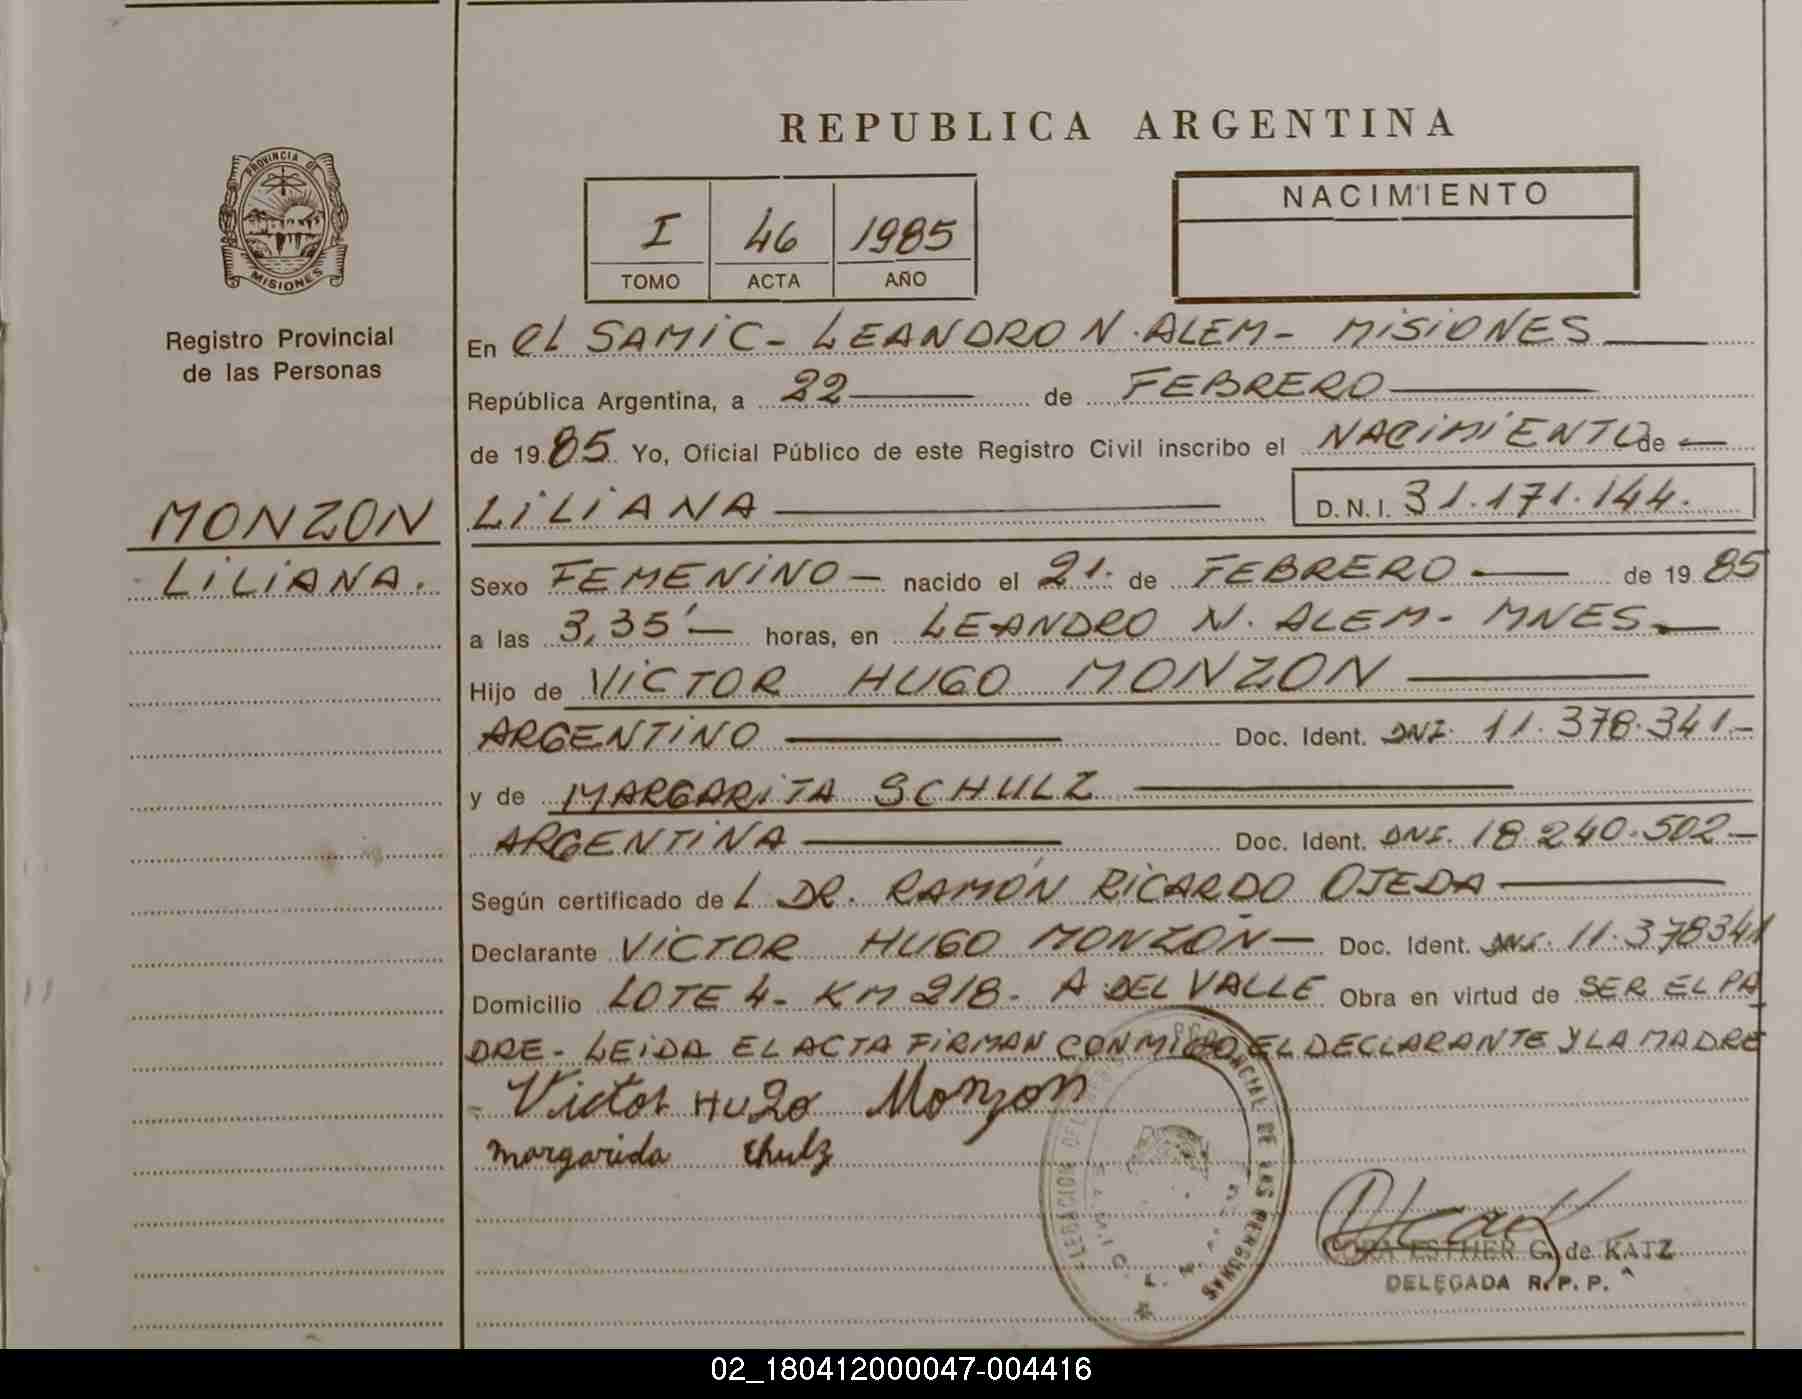 REPUBLICA ARGENTINA
PROVINCIA DE
MISIONES
Registro Provincial
de las Personas
I 46 1985
TOMO ACTA AÑO
NACIMIENTO
En el SAMIC - LEANDRO N. ALEM - MISIONES
República Argentina, a 22 de FEBRERO
de 1985 Yo, Oficial Público de este Registro Civil inscribo el NACIMIENTO de
LILIANA D.N.I. 31.171.144.
MONZON
LILIANA.
Sexo FEMENINO - nacido el 21. de FEBRERO de 1985
a las 3,35' horas, en LEANDRO N. ALEM - MNES.
Hijo de VICTOR HUGO MONZON
ARGENTINO Doc. Ident. DNI. 11.378.341.-
y de MARGARITA SCHULZ
ARGENTINA Doc. Ident. DNI. 18.240.502-
Según certificado de L DR. RAMÓN RICARDO OJEDA
Declarante VICTOR HUGO MONZON - Doc. Ident. DNI. 11.378341
Domicilio LOTE 4 - KM 218 - A DEL VALLE Obra en virtud de SER EL PA
DRE - LEIDA EL ACTA FIRMAN CONMIGO EL DECLARANTE Y LA MADRE
Victor Hugo Monzon
margarida chulz
DE LAS PERSONAS
ESTHER G. de KATZ
DELEGADA R.P.P.
02_180412000047-004416